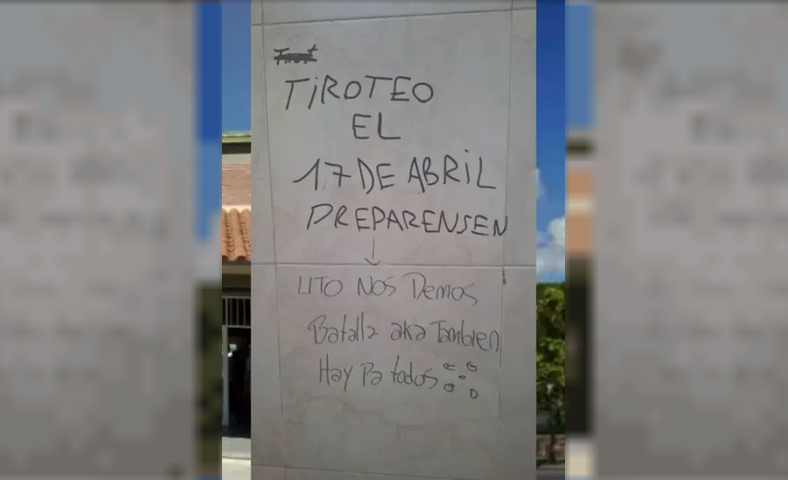 TIROTEO
EL
17 DE ABRIL
PREPARENSEN
LITO NOS Demos
Batalla aka Tambien
Hay Pa todos